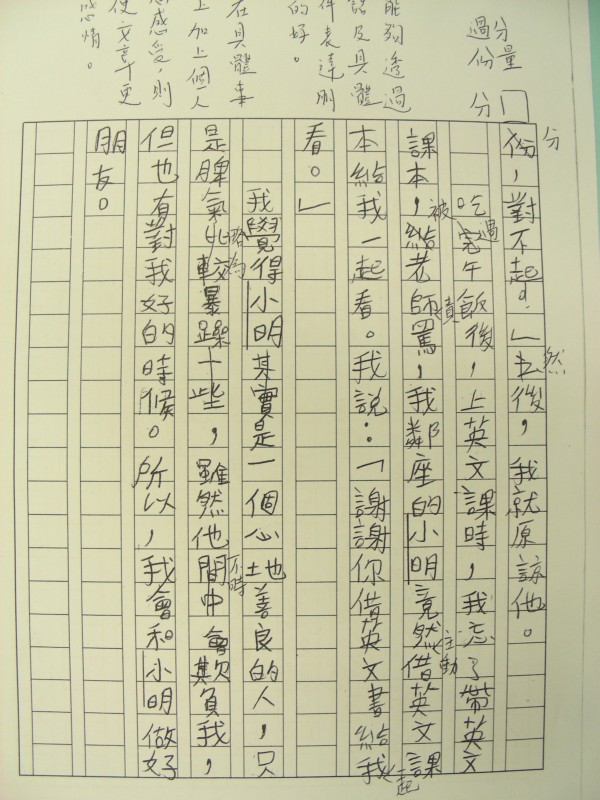 份，對不起？」之後，我就原諒他。
吃完午飯後，上英文課時，我忘了帶英文
課本，給老師罵，我鄰座的小明竟然借英文課
本給我一起看。我說：「謝謝你借英文書給我
看。」
我覺得小明其實是一個心地善良的人，只
是脾氣比較暴躁一些，雖然他間中會欺負我，
但也有對我好的時候。所以，我會和小明做好
朋友。
分
然
過
被
責
主動
一起
略為
不時
分量
過份
分
能夠透過
及具體
件表達
的好。
具體事
上加上個人
感受，則
使文章更
感情。